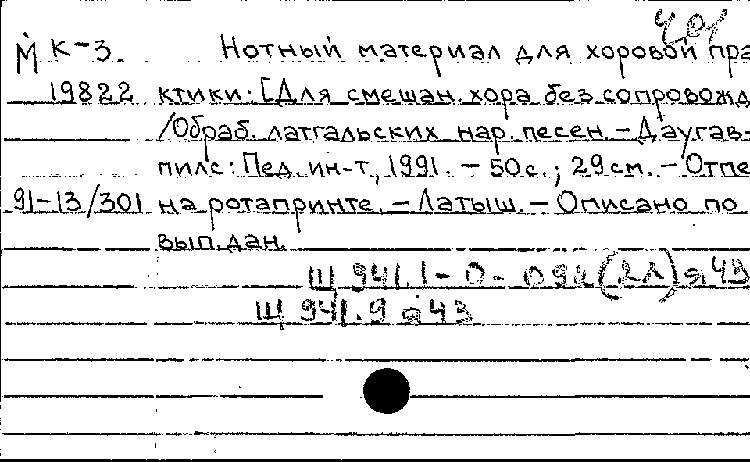 401
М К-3. Нотный материал для хоровой пра
19822 ктики: [Для смешан. хора без сопровожд
/Обраб. латгальских нар. песен. – Даугав-
пилс: Пед. ин-т, 1991. – 50с.; 29см. – Отпе
91-13/301 на ротапринте. – Латыш. – Описано по
вып. дан.
Щ 941.1-0-
Щ 941.9 я 43